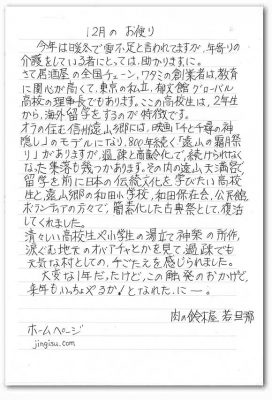 12月の お便り
今年は暖冬で雪不足と言われてますが、年寄りの
介護をしている者にとっては、助かりますに。
さて居酒屋の全国チェーン、ワタミの創業者は、教育
に関心が高くて、東京の私立、郁文館グローバル
高校の理事長でもあります。ここの高校生は、2年生
から、海外留学をするのが特徴です。
オラの住む信州遠山郷には、映画「千と千尋の神
隠し」のモデルになり、800年続く「遠山の霜月祭
り」がありますが、過疎と高齢化して、続けられなく
なった集落も幾つかあります。その内の遠山天満宮で
留学を前に日本の伝統文化を学びたい高校
生と、遠山郷の和田小学校、和田保存会、公民館、
ボランティアの方々で、簡素化した古典祭として、復活
してくれました。
清々しい高校生や小学生の湯立て神楽の所作、
涙ぐむ地天のオバアチャとかを見て、過疎でも
元気な村としての、手ごたえを感じられました。
大変な1年だったけど、この触発のおかげで、
来年もいっちょやるか!となれた、に一。
肉の鈴木屋 若旦那
ホームページ
jingisu.com